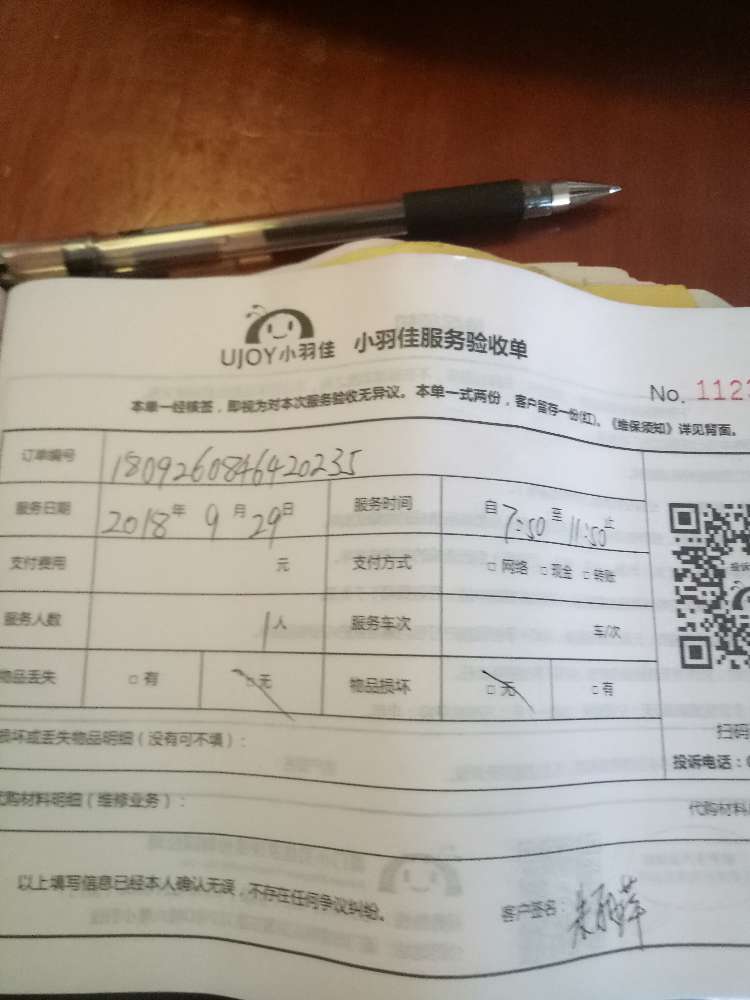 UJOY小羽佳 小羽佳服务验收单
No. 1123
本单一经核签,即视为对本次服务验收无异议。本单一式两份,客户留存一份(红)。《维保须知》详见背面。
订单编号 1809260846420235
服务日期 2018年 9月 29日 服务时间 自 7:50 至 11:50 止
支付费用 元 支付方式 □ 网络 □ 现金 □ 转账
服务人数 1人 服务车次 车/次
物品丢失 □ 有 □ 无 物品损坏 □ 无 □ 有
损坏或丢失物品明细(没有可不填):
扫码
投诉电话:0
代购材料明细(维修业务): 代购材料
以上填写信息已经本人确认无误,不存在任何争议纠纷。 客户签名: